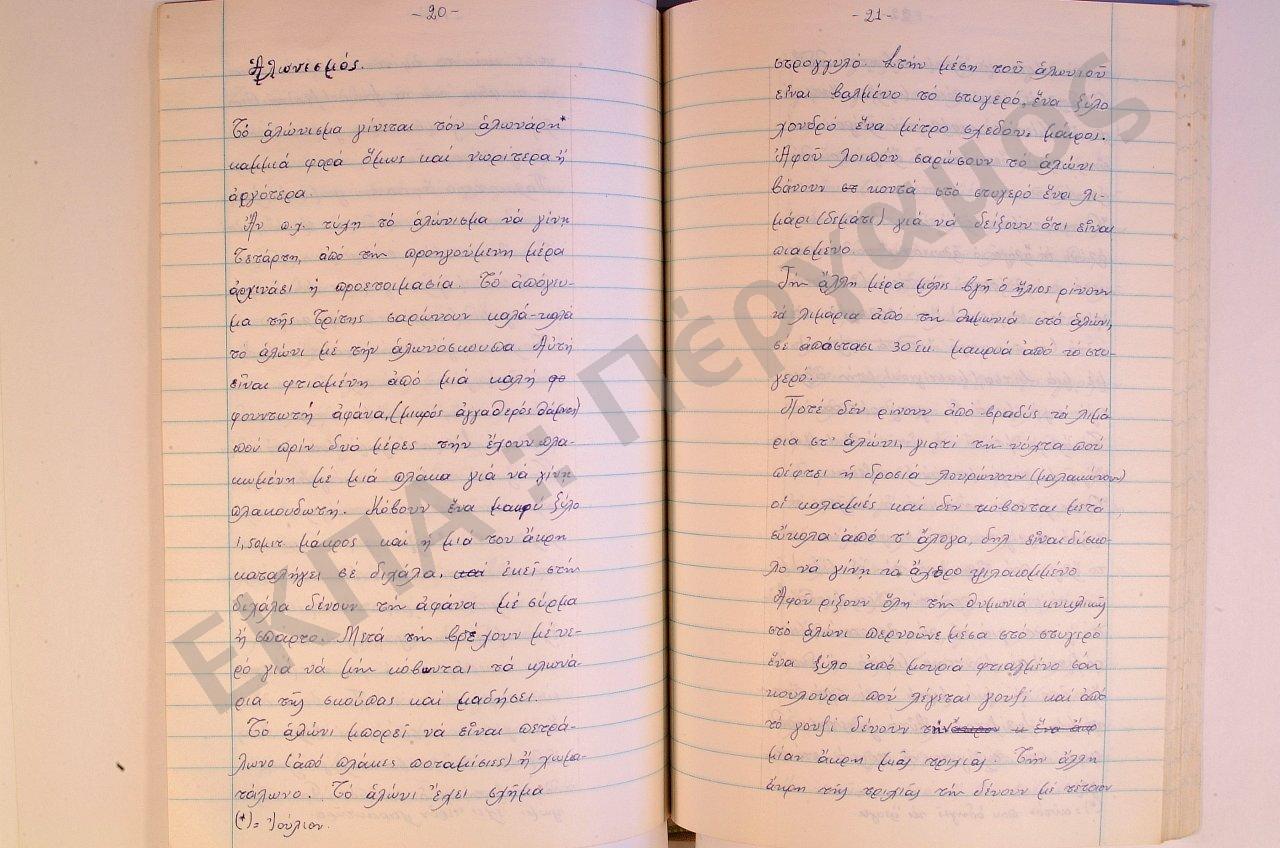 -20-
Ἁλωνισμός.
Τό ἁλώνισμα γίνεται τόν ἁλωνάρη*
καμμιά φορά ὅμως καί νωρίτερα ἤ
ἀργότερα.
Ἄν π.χ. τύχη τό ἁλώνισμα νά γίνη
Τετάρτη, ἀπό τήν προηγούμενη μέρα
ἀρχινάει ἡ προετοιμασία. Τό ἀπόγευ-
μα τῆς Τρίτης σαρώνουν καλά-καλά
τό ἁλώνι μέ τήν ἁλωνόσκουπα. Αὐτή
εἶναι φτιαμένη ἀπό μιά καλή φο
φουντωτή ἀφάνα, (μικρός ἀγγαθερός θάμνος)
πού πρίν δυό μέρες τήν ἔχουν πλα-
κωμένη μέ μιά πλάκα γιά νά γίνη
πλακουδωτή. Κόβουν ἕνα μακρύ ξύλο
1,50μιτ μάκρος καί ἡ μιά του ἄκρη
καταλήγει σέ διχάλα, καί ἐκεῖ στήν
διχάλα δένουν τήν ἀφάνα μέ σύρμα
ἤ σπάρτο. Μετά τήν βρέχουν μέ νε-
ρό γιά νά μήν κόβωνται τά κλωνά-
ρια τῆς σκούπας καί μαδήσει.
Τό ἁλώνι μπορεῖ νά εἶναι πετρά-
λωνο (ἀπό πλάκες ποταμίσιες) ἤ χωμα-
τάλωνο. Τό ἁλώνι ἔχει σχῆμα
(*)= Ἰούλιον.
-21-
στρογγυλό. Στήν μέση τοῦ ἁλωνιοῦ
εἶναι βαλμένο τό στυγερό, ἕνα ξύλο
χονδρό ἕνα μέτρο σχεδόν, μακρος.
Ἀφοῦ λοιπόν σαρώσουν τό ἁλώνι
βάνουν στ κοντά στό στυγερό ἕνα λι-
μάρι (δεμάτι) γιά νά δείξουν ὅτι εἶναι
πιασμένο.
Τήν ἄλλη μέρα μόλις βγῆ ὁ ἥλιος ρίνουν
τά λιμάρια ἀπό τή θημωνιά στό ἁλώνι,
σέ ἀπόστασι 30 ἑκ. μακρυά ἀπό τό στυ-
γερό.
Ποτέ δέν ρίνουν ἀπό βραδύς τά λιμά
ρια στ' ἁλώνι, γιατί τήν νύχτα πού
πέφτει ἡ δροσιά λουρώνουν (μαλακώνουν)
οἱ καλαμιές καί δέν κόβονται μετά
εὔκολα ἀπό τ' ἄλογα, δηλ εἶναι δύσκο-
λο νά γίνη τό ἄχερο ψιλοκομμένο.
Ἀφοῦ ρίξουν ὅλη τήν θυμωνιά κυκλικῶς
στό ἁλώνι περνοῦνε μέσα στό στυγερό
ἕνα ξύλο ἀπό μουριά φτιαγμένο σάν
κουλούρα πού λέγεται γουβί καί ἀπό
τό γουβί δένουν τήν
μίαν ἄκρη μιᾶς τριχιᾶς. Τήν ἄλλη
ἄκρη τῆς τριχιᾶς τήν δένουν μέ τέτοιον
ΕΚΠΑ :: Πέργαμος